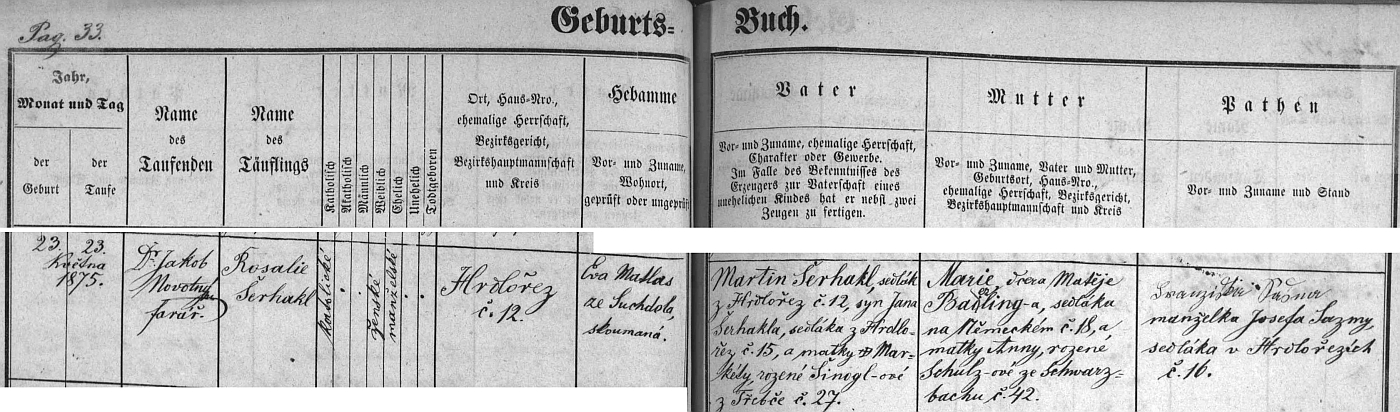 Pag. 33.
Geburts= Buch.
Jahr,
Monat und Tag
der
Geburt
der
Taufe
Name
des
Taufenden
Name
des
Täuflings
Katholisch
Akatholisch
Männlich
Weiblich
Ehelich
Unehelich
Todtgeboren
Ort, Haus-Nro.,
ehemalige Herrschaft,
Bezirksgericht,
Bezirkshauptmannschaft
und Kreis
Hebamme
Vor- und Zuname,
Wohnort,
geprüft oder ungeprüft
Vater
Vor- und Zuname, ehemalige Herrschaft,
Charakter oder Gewerbe.
Im Falle des Bekenntnisses des
Erzeugers zur Vaterschaft eines
unehelichen Kindes hat er nebst zwei
Zeugen zu fertigen.
Mutter
Vor- und Zuname, Vater und Mutter,
Geburtsort, Haus-Nro.,
ehemalige Herrschaft, Bezirksgericht,
Bezirkshauptmannschaft und Kreis
Pathen
Vor- und Zuname und Stand
23. 23.
Května
1875.
Dr. Jakob
Novotný
farář.
Rosalie
Šerhakl
katolické
ženské
manželské
Hrdlořez
č. 12.
Eva Matlas
ze Suchdola,
skoumaná.
Martin Šerhakl, sedlák
z Hrdlořez č. 12, syn Jana
Šerhakla, sedláka z Hrdlo-
řez č. 15, a matky Mar-
kéty, rozené Šinogl-ové
z Třebče č. 27.
Marie, dcera Matěje
Badling-a, sedláka
na Německém č. 18, a
matky Anny, rozené
Schulz-ové ze Schwarz=
bachu č. 42.
manželka Josefa Sazmy,
sedláka v Hrdlořezích
č. 16.